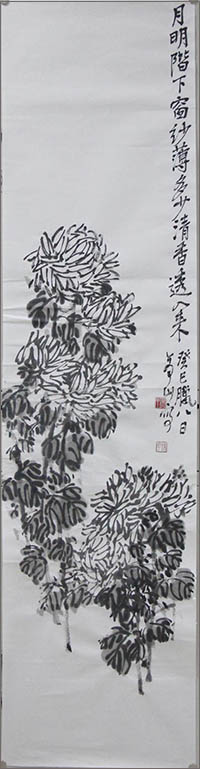 月明階下窗紗薄多少清香透入来
癸巳臘八日